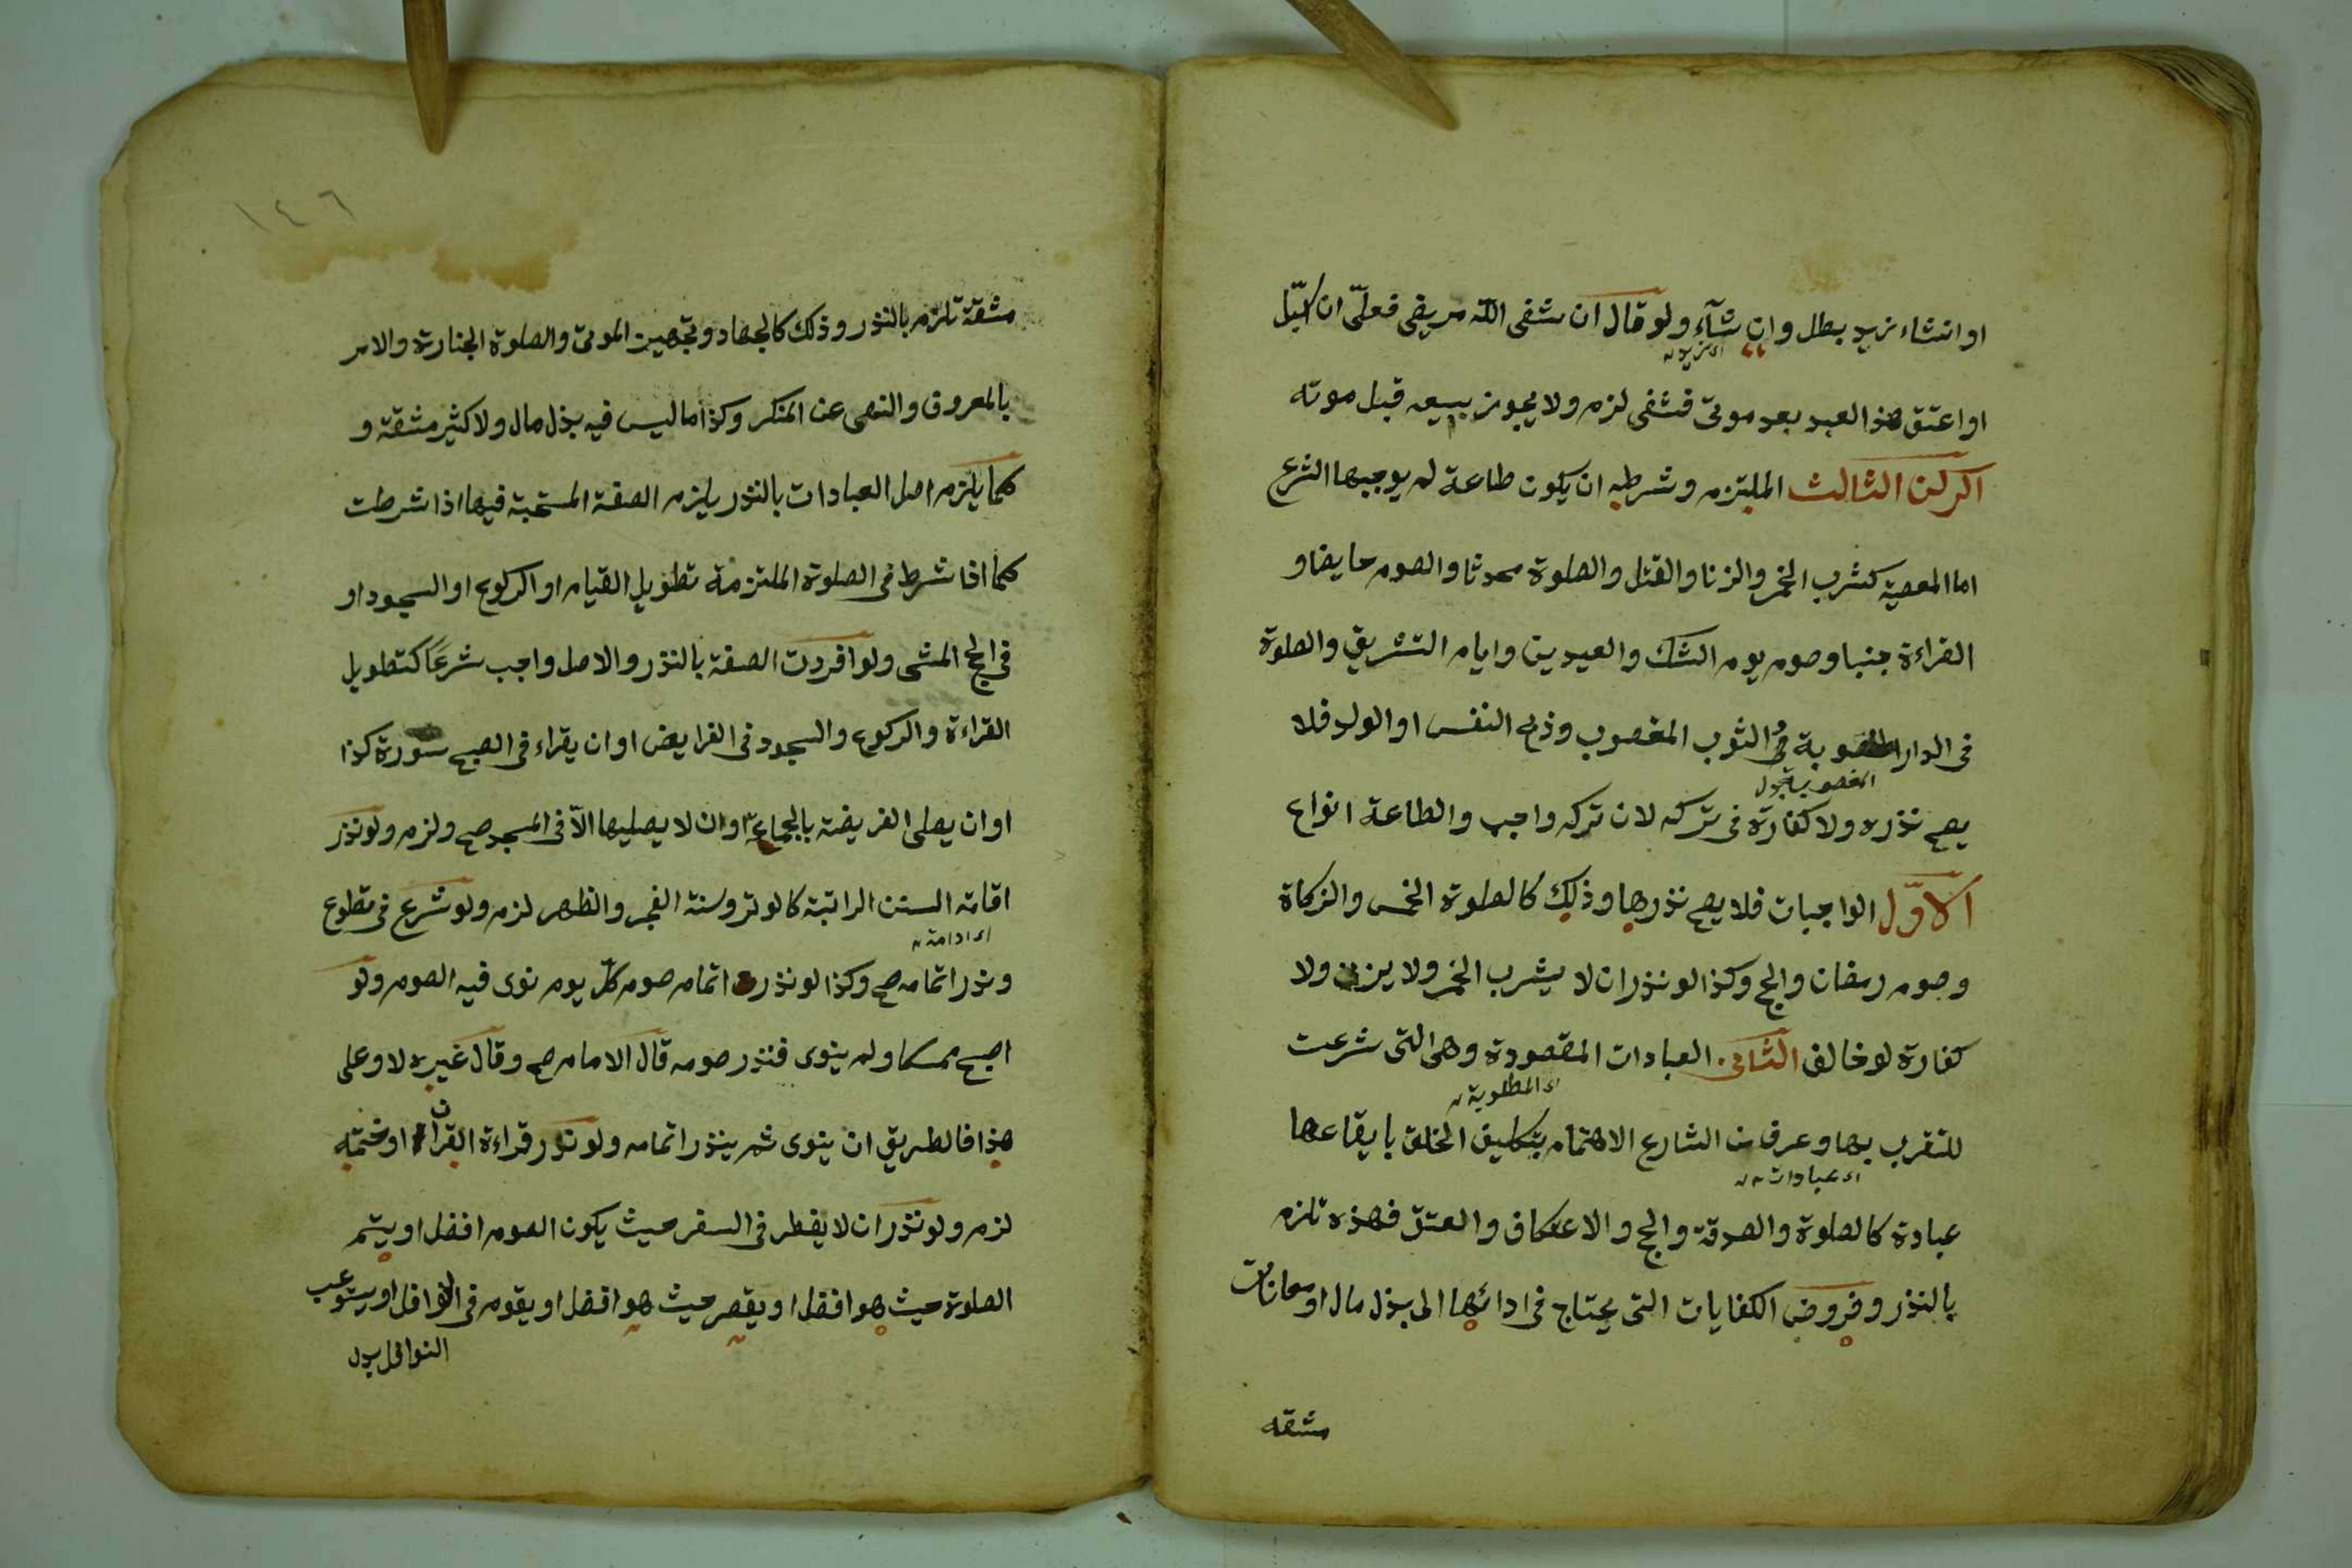 او ان شاء زيد بطل وان شآء ولو قال ان شفى الله مريضى فعلىّ ان
اى زيد
او اعتق هذا العبد بعد موتى فشفى لزم ولا يجوز بيعه قبل موته
الركن الثالث الملتزم وشرطه ان يكون طاعة لم يوجبها الشرع
اما المعصية كشرب الخمر والزنا والقتل والصلوة محدثا والصوم حايضا و
القراءة جنبا وصوم يوم الشك والعيدين وايام التشريق والصلوة
فى الدار المغصوبة فى الثوب المغصوب وذبح النفس او الولد فلا
المغصوبة بدل
يصح نذره ولا كفارة فى تركه لان تركه واجب والطاعة انواع
الاوّل الواجبات فلا يصح نذرها وذلك كالصلوة الخمس والزكاة
وصوم رمضان والحج وكذا لو نذر ان لا يشرب الخمر ولا يزنى ولا
كفارة لو خالف الثانى العبادات المقصودة وهى التى شرعت
اى المطلوبة
للتقرب بها وعرف من الشارع الاهتمام بتكليف الخلق بايقاعها
اى عبادات
عبادة كالصلوة والصدقة والحج والاعتكاف والعتق فهذه تلزم
بالنذر وفروض الكفايات التى يحتاج فى ادائها الى بذل مال او معانات
مشقه
١٤٦
مشقة تلزم بالنذر وذلك كالجهاد وتجهيز الموتى والصلوة الجنازة والامر
بالمعروف والنهى عن المنكر وكذا ما ليس فيه بذل مال ولا كثير مشقة و
كما يلزم اصل العبادات بالنذر يلزم الصفة المستحبة فيها اذا شرطت
كما اذا شرط فى الصلوة الملتزمة تطويل القيام او الركوع او السجود او
فى الحج المشى ولو افردت الصفة بالنذر والاصل واجب شرعاً كتطويل
القراءة والركوع والسجود فى الفرايض او ان يقراء فى الصبح سورة كذا
او ان يصلى الفريضة بالجماعة او ان لا يصليها الّا فى المسجد صح ولزم ولو نذر
اقامة السنن الراتبة كالوتر وسنة الفجر والظهر لزم ولو شرع فى تطوع
اى ادامة
ونذر اتمامه صح وكذا لو نذر اتمام صوم كلّ يوم نوى فيه الصوم ولو
اصبح ممسكا ولم ينوى فنذر صومه قال الامام صح وقال غيره لا وعلى
هذا فالطريق ان ينوى ثم ينذر اتمامه ولو نذر قراءة القرآن او ختمة
لزم ولو نذر ان لا يفطر فى السفر حيث يكون الصوم افضل او يتم
الصلوة حيث هو افضل او يقصر حيث هو افضل او يقوم فى النوافل او يستوعب
النوافل بدل